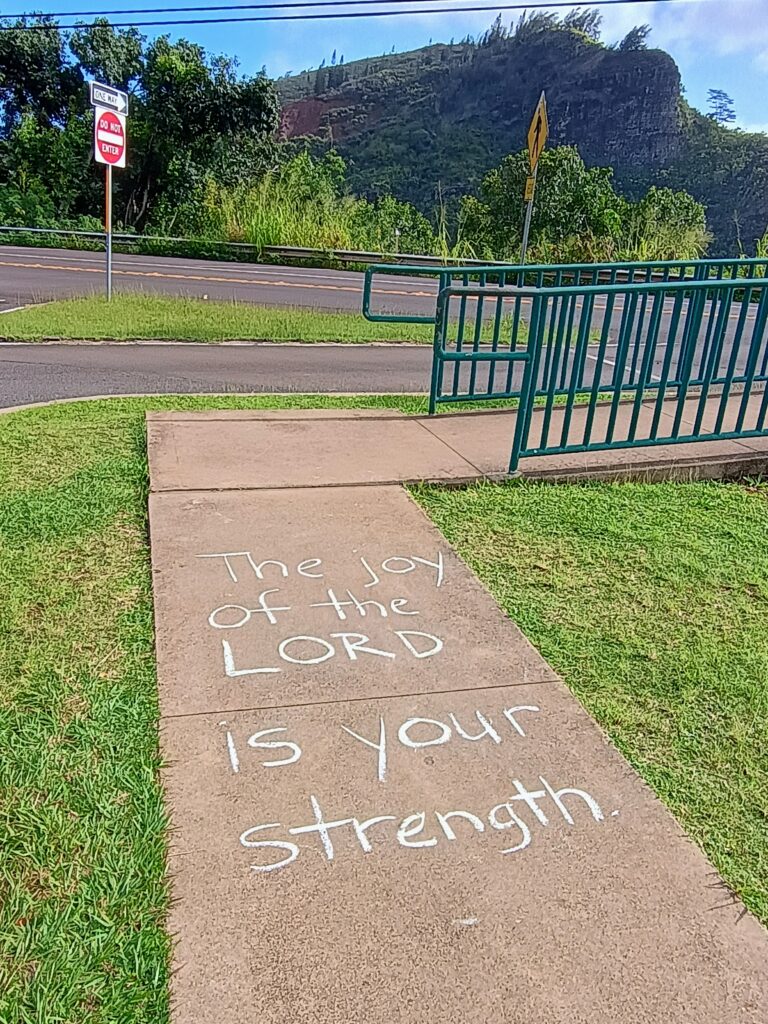 ONE WAY
DO NOT
ENTER
The joy
of the
LORD
is your
strength.